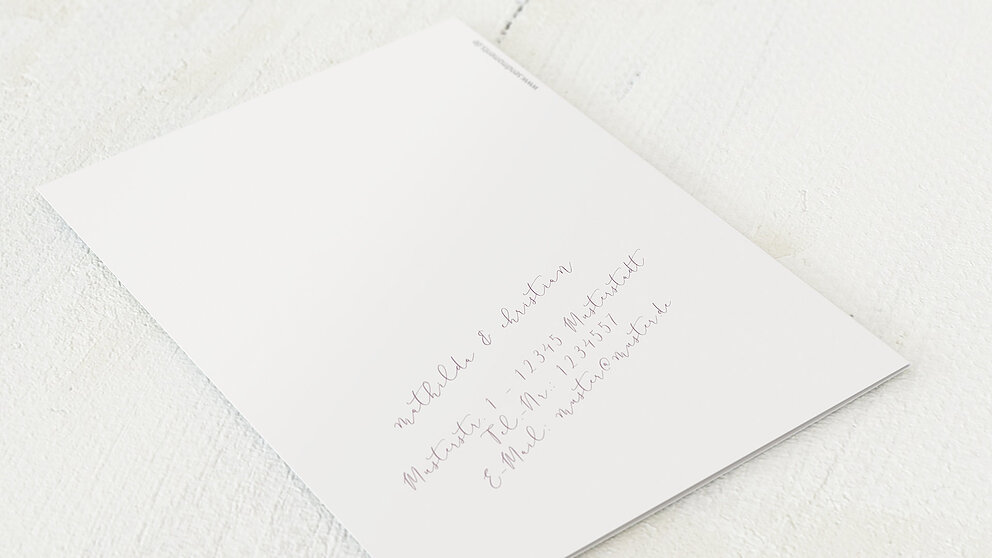 mathilda & christian
Musterstr. 1 - 12345 Musterstadt
Tel-Nr.: 1234557
E-Mail: muster@muster.de